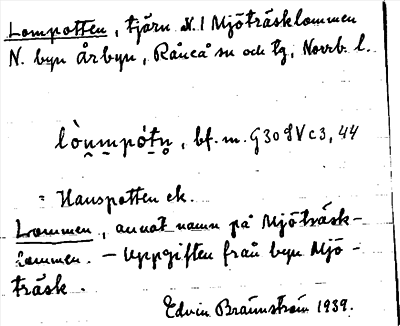 Lompotten, tjärn N. l Mjöträsklommen
N. byn Årbyn, Råneå sn och tg, Norrb. l.
lòu̯mpót, bf. m. G30 8Vc3, 44
= Hanspotten ek.
Lommen, annat namn på Mjöträsk-
lommen. – Uppgiften från byn Mjö-
träsk.
Edvin Brännström 1939.